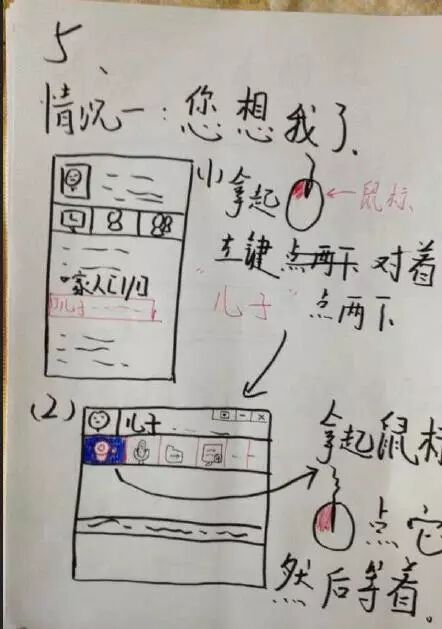 5、
情况一：您想我了、
小拿起 ← 鼠标
左键点两下 对着
"儿子" 点两下
家人[1/1]
儿子
(2)
儿子
拿起鼠标
点它
然后等着。